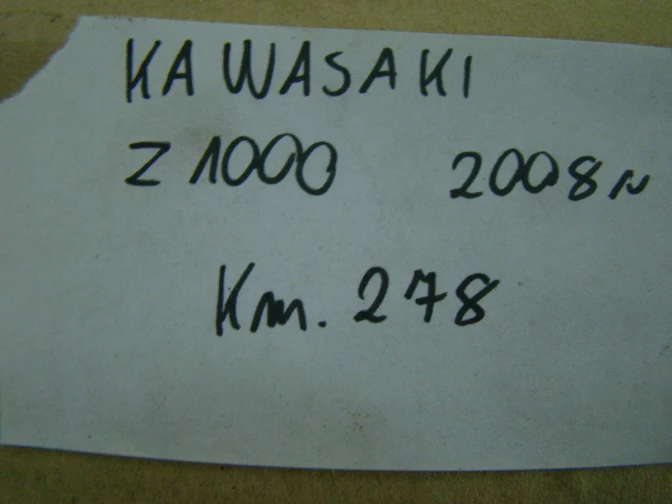 KAWASAKI
Z 1000 2008~
Km. 278